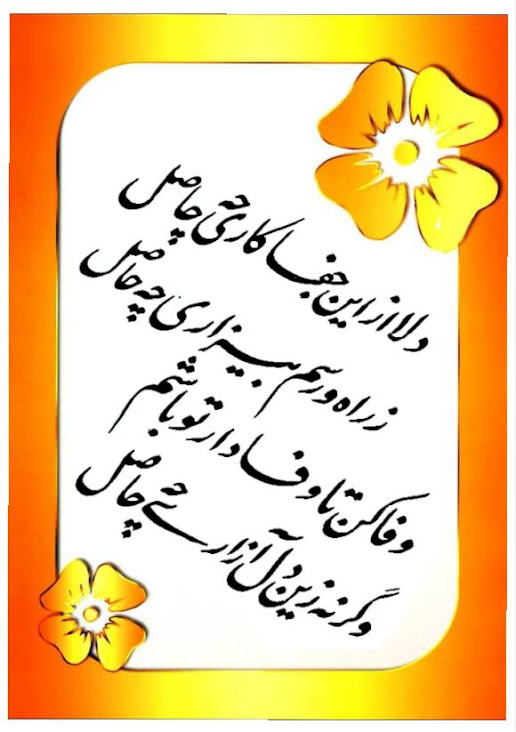 دلا از این جفا کاری چه حاصل
ز راه و رسم بیزاری چه حاصل
وفا کن تا وفادار تو باشم
وگرنه زین دل آزاری چه حاصل